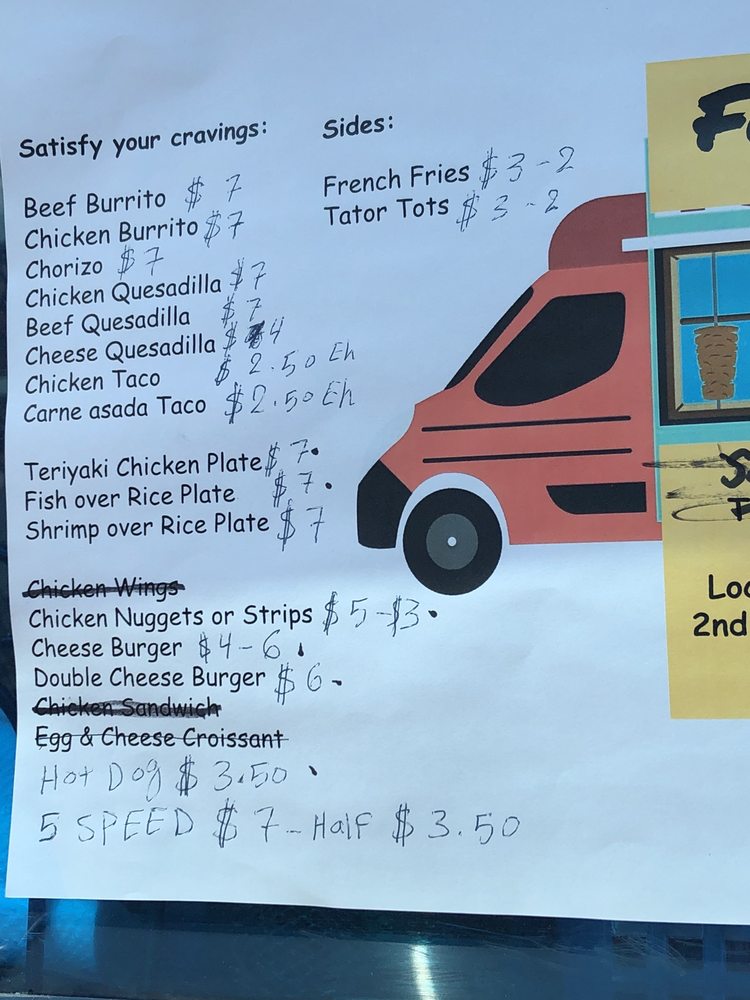 Satisfy your cravings:
Beef Burrito $ 7
Chicken Burrito $ 7
Chorizo $ 7
Chicken Quesadilla $ 7
Beef Quesadilla $ 7
Cheese Quesadilla $ 4
Chicken Taco $ 2.50 Eh
Carne asada Taco $2.50 Eh
Teriyaki Chicken Plate $ 7.
Fish over Rice Plate $ 7.
Shrimp over Rice Plate $ 7
Chicken Wings
Chicken Nuggets or Strips $ 5-$3.
Cheese Burger $4-6.
Double Cheese Burger $ 6-
Chicken Sandwich
Egg & Cheese Croissant
Hot Dog $ 3.50
5 SPEED $ 7-Half $ 3.50
Sides:
French Fries $ 3-2
Tator Tots $ 3-2
2nd